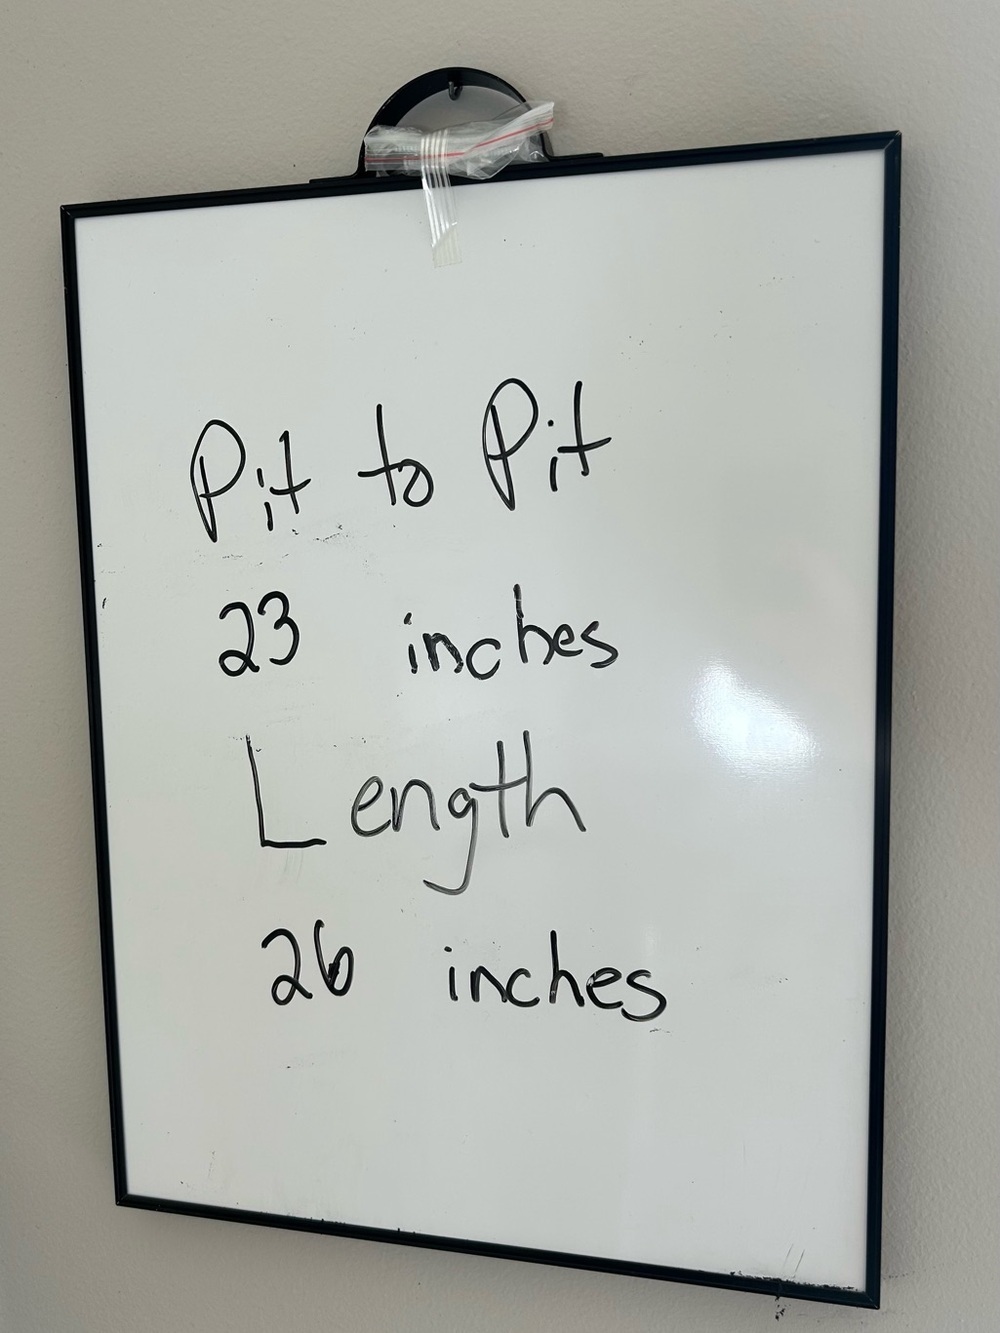 Pit to Pit
23 inches
Length
26 inches